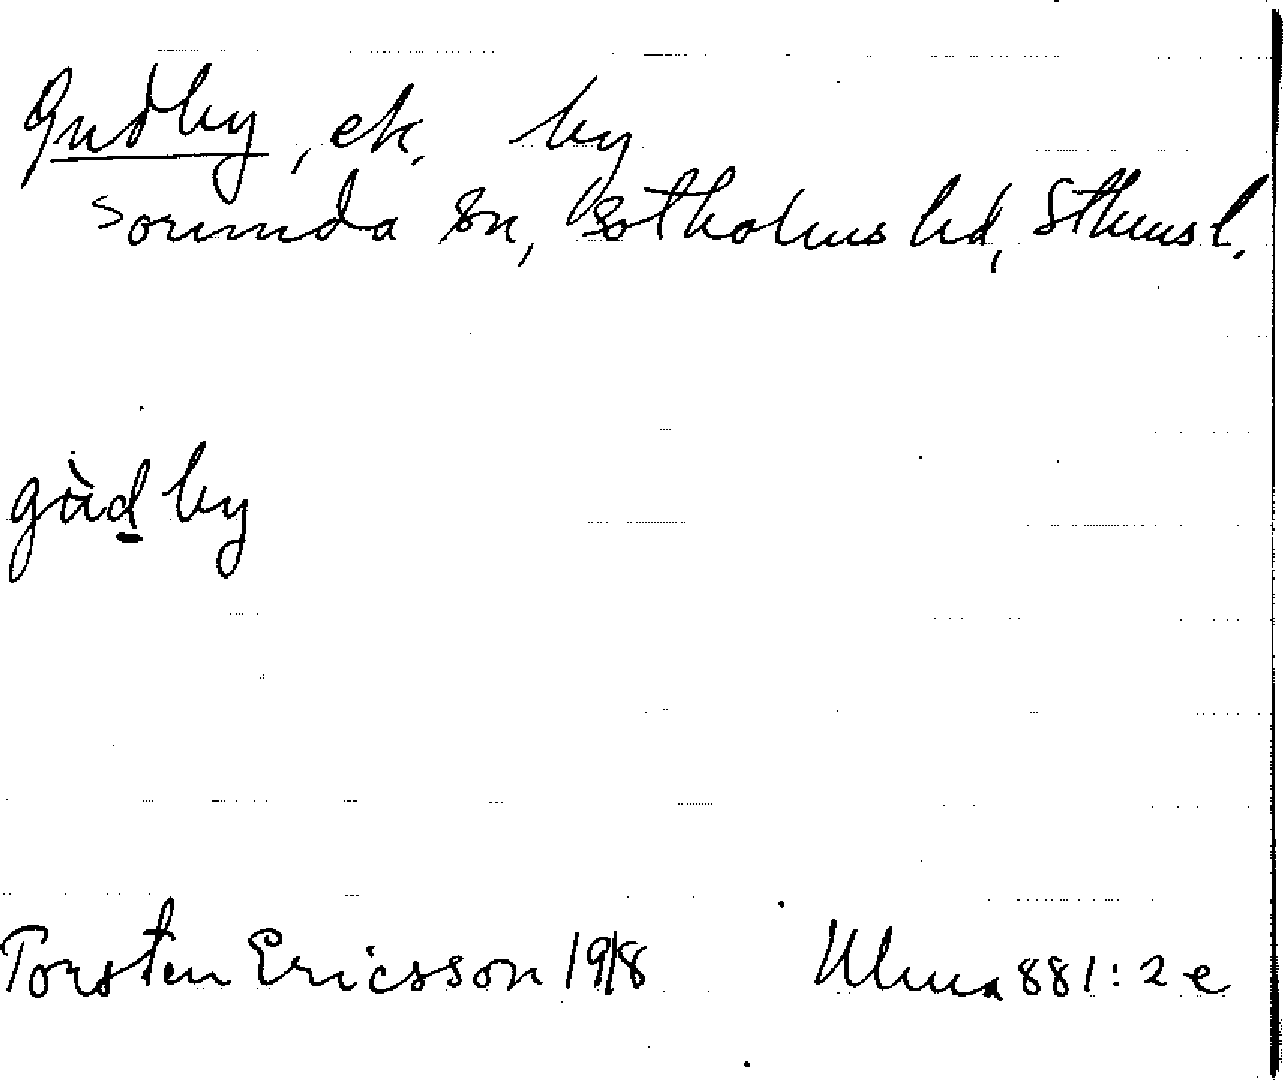 Gudby, ek. by
Sorunda sn, Sotholms hd, Sthms l.
gùd by
Torsten Ericsson 1918 Ulma 881:2 e